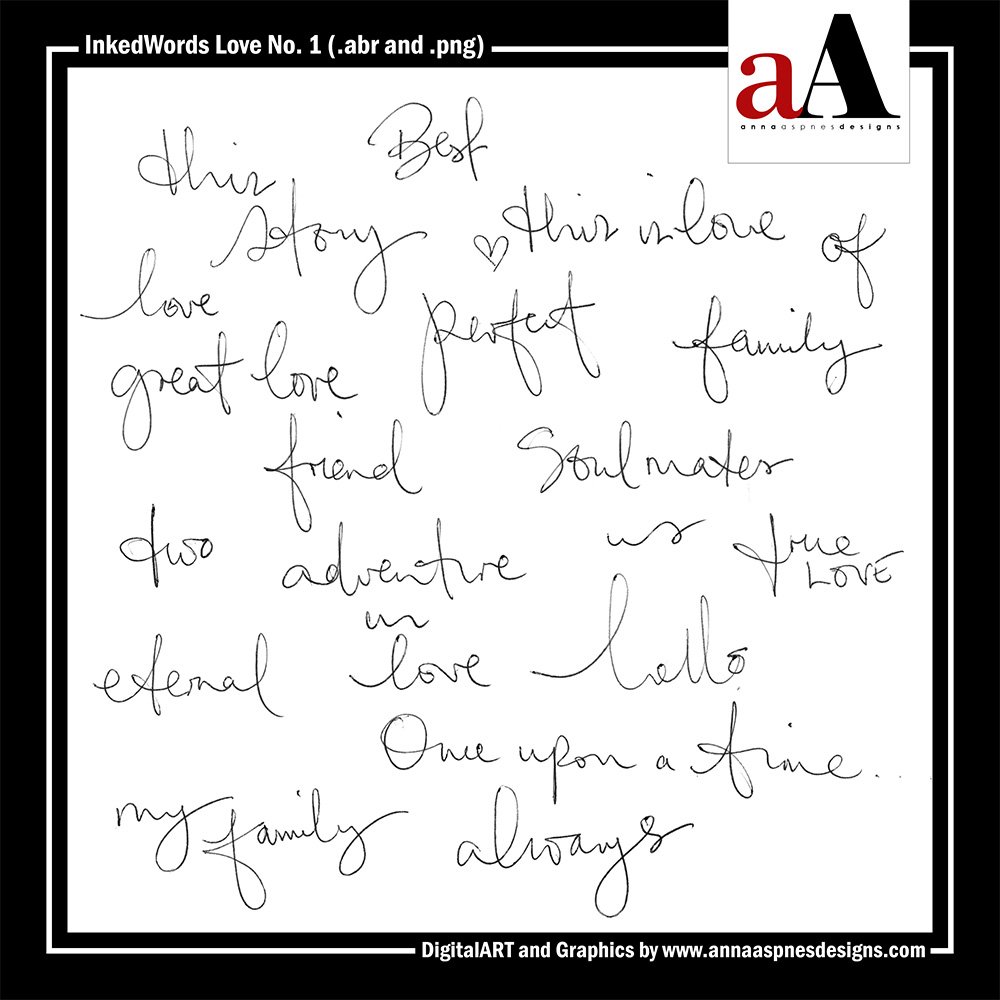 InkedWords Love No. 1 (.abr and .png)
aA
annaaspnesdesigns
Best
this
story
this is love
of
love
perfect
family
great love
friend
Soulmates
two
adventure
us
true
LOVE
in
eternal
love
hello
Once upon a time...
my family
always
DigitalART and Graphics by www.annaaspnesdesigns.com